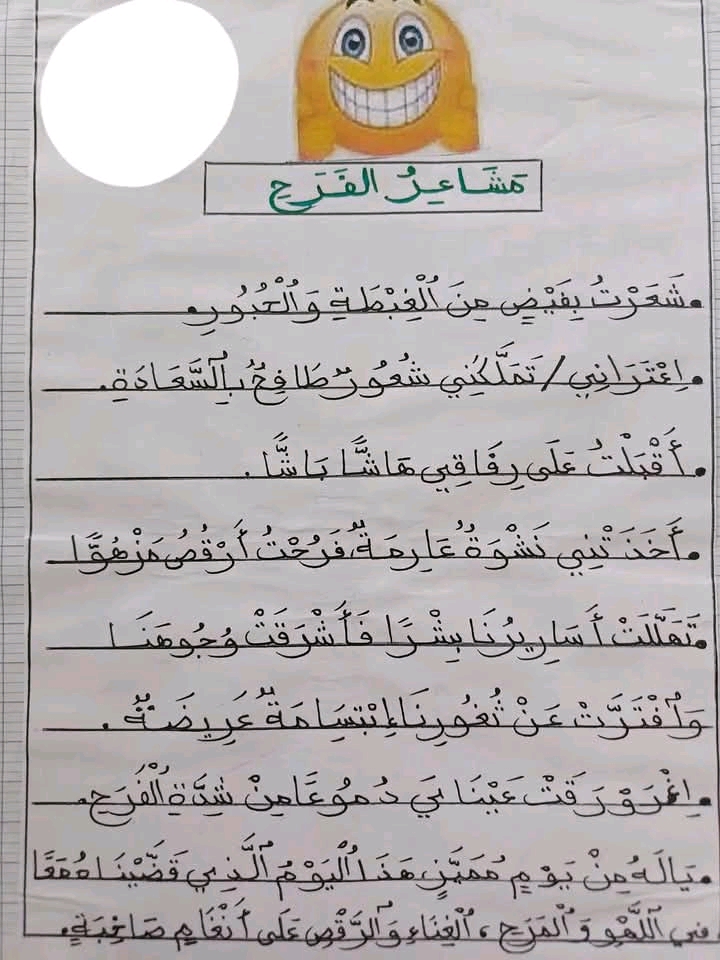 مَشَاعِرُ الفَرَحِ
.شَعَرْتُ بِفَيْضٍ مِنَ ٱلْغِبْطَةِ وَٱلْحُبُورِ.
.اِعْتَرَانِي/ تَمَلَّكَنِي شُعُورٌ طَافِحٌ بِٱلسَّعَادَةِ.
.أَقْبَلْتُ عَلَى رِفَاقِي هَاشًّا بَاشًّا.
.أَخَذَتْنِي نَشْوَةٌ عَارِمَةٌ، فَرُحْتُ أَرْقُصُ مَزْهُوًّا
.تَهَلَّلَتْ أَسَارِيرُنَا بِشْرًا فَأَشْرَقَتْ وُجُوهَنَا
وَٱفْتَرَّتْ عَنْ ثُغُورِنَا اِبْتِسَامَةٌ عَرِيضَةٌ.
.اِغْرَوْرَقَتْ عَيْنَايَ دُمُوعًا مِنْ شِدَّةِ ٱلْفَرَحِ.
.يَالَهُ مِنْ يَوْمٍ مُمَيَّزٍ هَذَا ٱلْيَوْمُ ٱلَّذِي قَضَّيْنَاهُ مَعًا
فِي ٱللَّهْوِ وَٱلْمَرَحِ، ٱلْغِنَاءِ وَٱلرَّقْصِ عَلَى أَنْغَامٍ صَاخِبَةٍ.